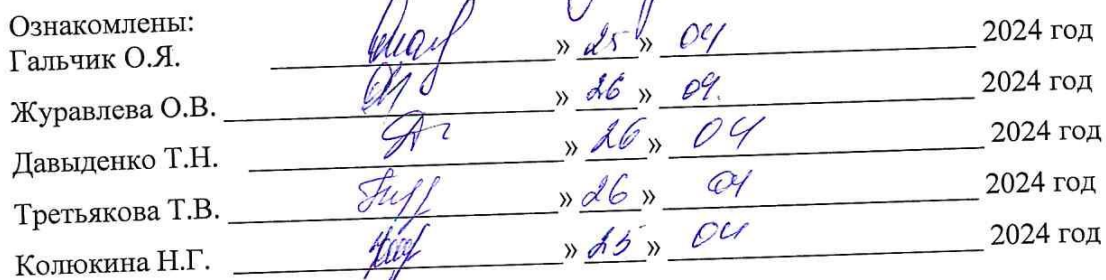 Ознакомлены:
Гальчик О.Я. » 25 » 04 2024 год
Журавлева О.В. » 26 » 04. 2024 год
Давыденко Т.Н. » 26 » 04 2024 год
Третьякова Т.В. » 26 » 04 2024 год
Колюкина Н.Г. » 25 » 04 2024 год